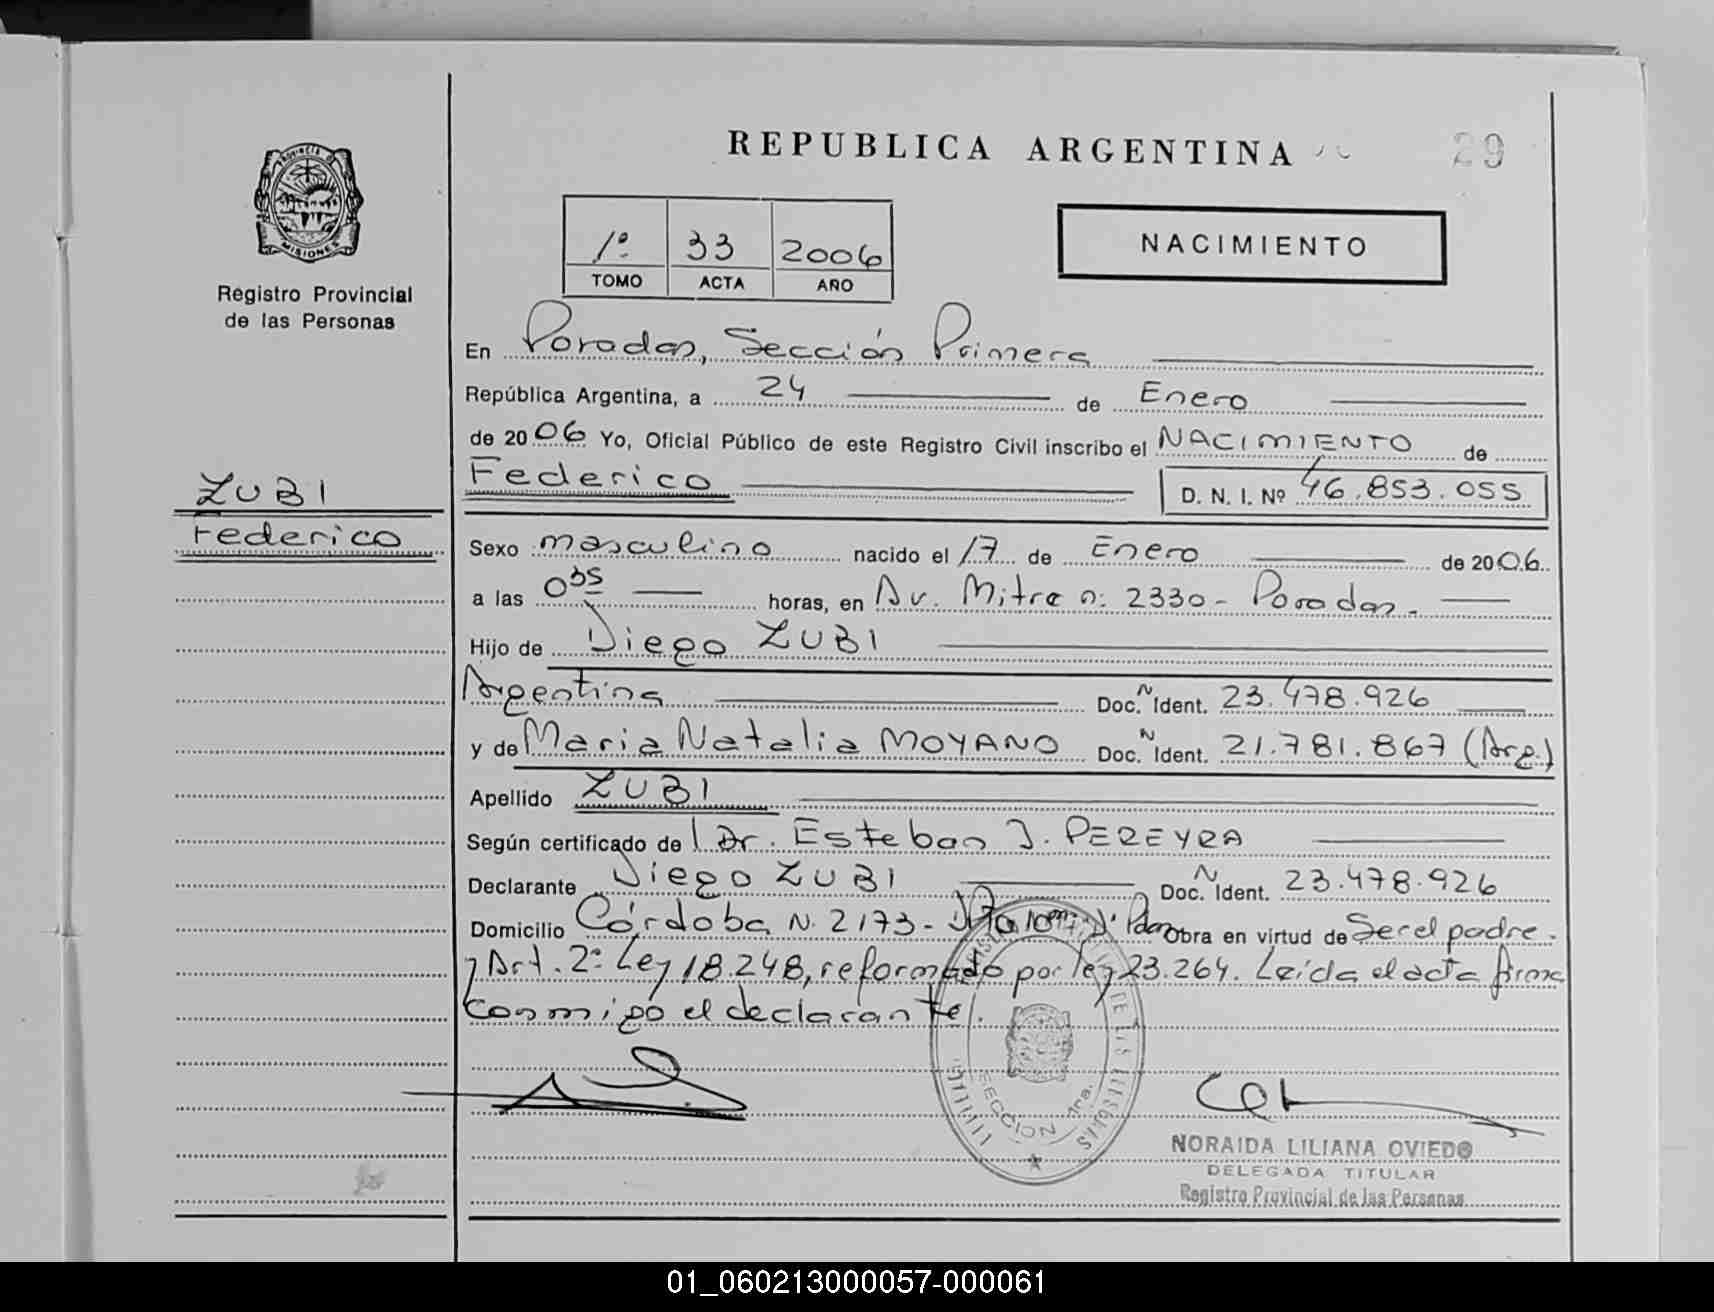 REPUBLICA ARGENTINA
29
PROVINCIA DE
MISIONES
Registro Provincial
de las Personas
1º 33 2006
TOMO ACTA AÑO
NACIMIENTO
En Posadas, Sección Primera
República Argentina, a 24 de Enero
de 2006 Yo, Oficial Público de este Registro Civil inscribo el NACIMIENTO de
ZUBI
Federico
Federico D. N. I. Nº 46.853.055
Sexo masculino nacido el 17 de Enero de 2006.
a las 0 35 horas, en Av. Mitre n: 2330 - Posadas.
Hijo de Diego ZUBI
Argentina Doc. N Ident. 23.478.926
y de Maria Natalia MOYANO Doc. N Ident. 21.781.867 (Arg.)
Apellido ZUBI
Según certificado de l Dr. Esteban J. PEREYRA
Declarante Diego ZUBI Doc. N Ident. 23.478.926
Domicilio Córdoba N. 2173 - Obra en virtud de Ser el padre.
y Art. 2º Ley 18.248, reformado por ley 23.264. Leída el acta firma
conmigo el declarante.
DE LAS PERSONAS
SECCION 1ra.
NORAIDA LILIANA OVIEDO
DELEGADA TITULAR
Registro Provincial de las Personas
01_060213000057-000061